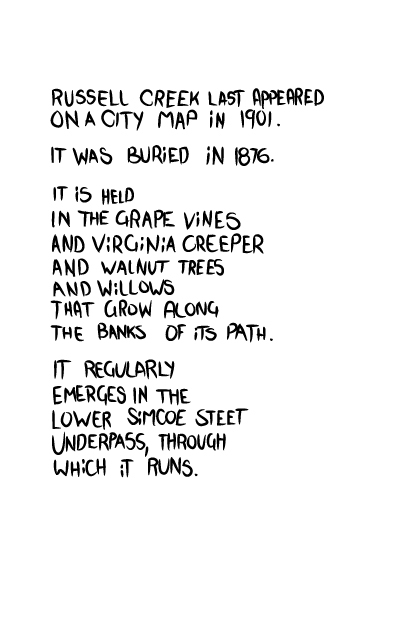 RUSSELL CREEK LAST APPEARED
ON A CITY MAP IN 1901.
IT WAS BURIED IN 1876.
IT IS HELD
IN THE GRAPE VINES
AND VIRGINIA CREEPER
AND WALNUT TREES
AND WILLOWS
THAT GROW ALONG
THE BANKS OF ITS PATH.
IT REGULARLY
EMERGES IN THE
LOWER SIMCOE STEET
UNDERPASS, THROUGH
WHICH IT RUNS.